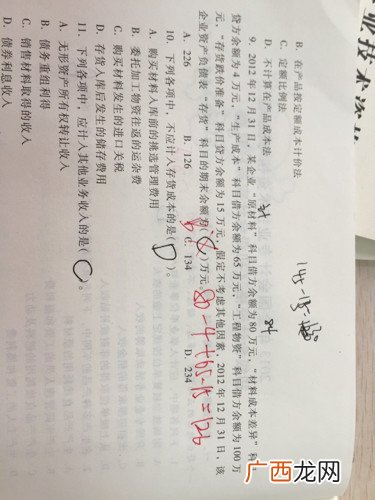 B. 在产品按定额成本计价法
C. 定额比例法
D. 不计算在产品成本法
9. 2012年12月31日，某企业“原材料”科目借方余额为80万元，“材料成本差异”科目
贷方余额为4万元，“生产成本”科目借方余额为65万元，“工程物资”科目借方余额为100万
元，“存货跌价准备”科目贷方余额为15万元。假定不考虑其他因素，2012年12月31日，该
企业资产负债表“存货”科目的期末余额为( )万元。
80-4+65-15=126
A. 226 B. 126 C. 134 D. 234
10. 下列各项中，不应计入存货成本的是(D)。
A. 购买材料入库前的挑选管理费用
B. 委托加工物资往返的运杂费
C. 购买材料发生的进口关税
D. 存货入库后发生的储存费用
11. 下列各项中，应计入其他业务收入的是(C)。
A. 无形资产所有权转让收入
B. 债务重组利得
C. 销售材料取得的收入
D. 债券利息收入
广西龙网